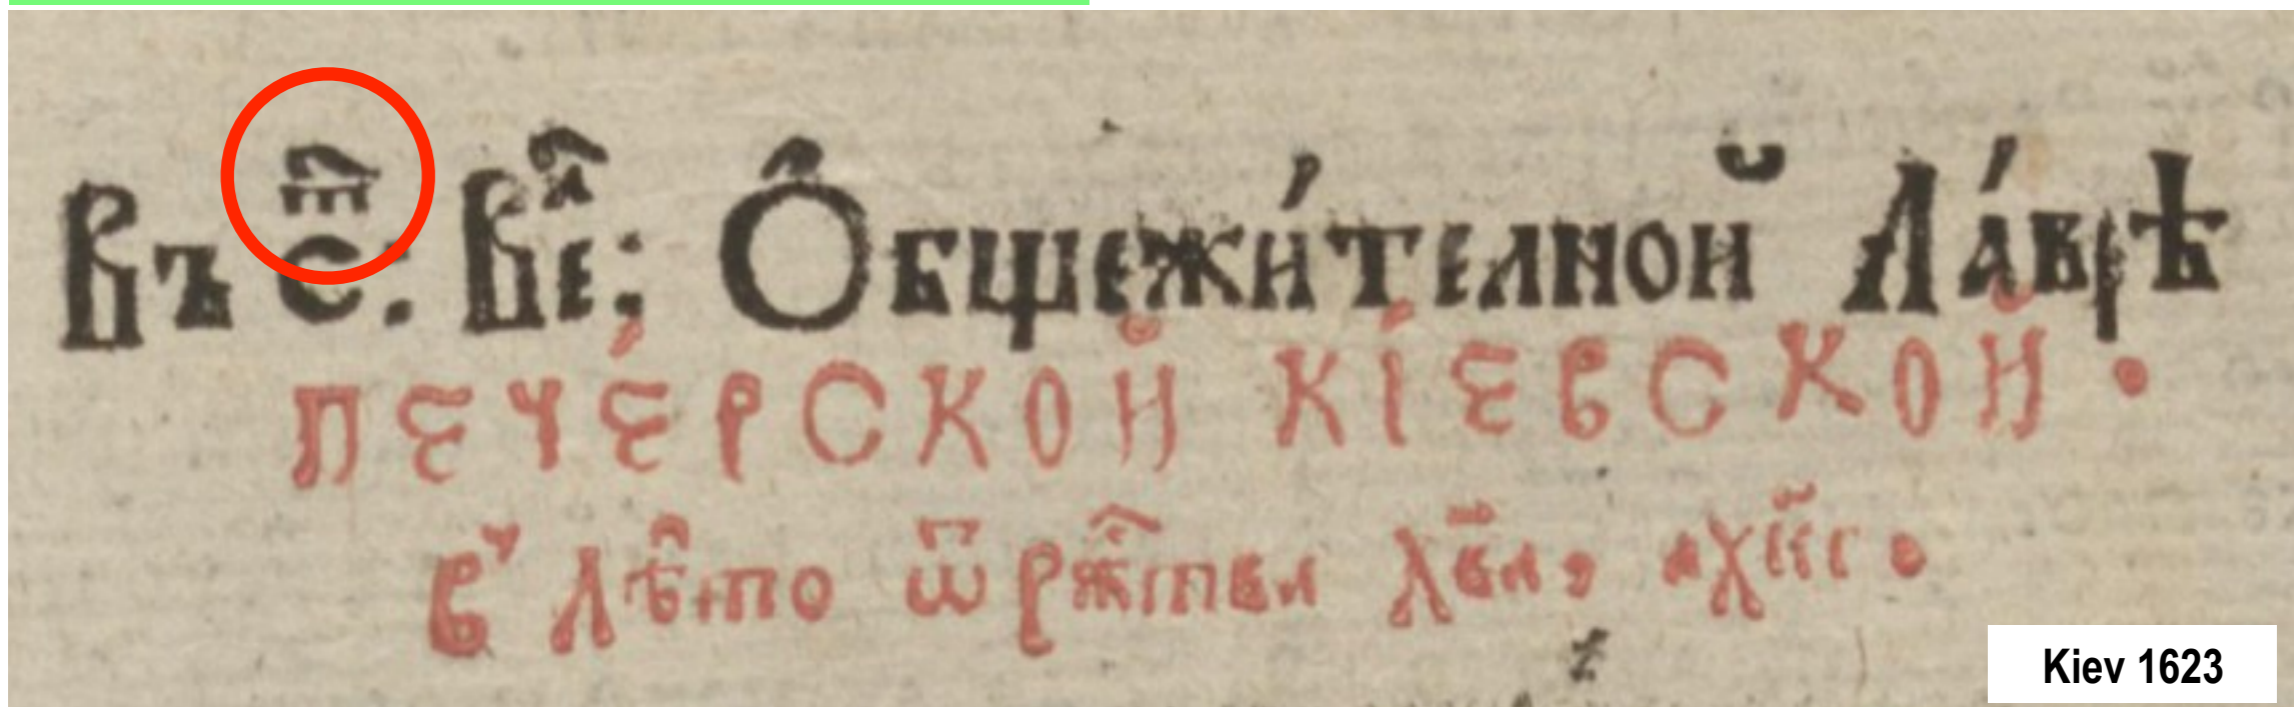 Въ Сⷮ҇: Веⷧ҇: Ѻ҆бщежи́телной Ла́врѣ
пече́рской Кі́евской.
В̾ лѣ̑то ѿ рж҇тва Хв҃а, ахк҃г.
Kiev 1623